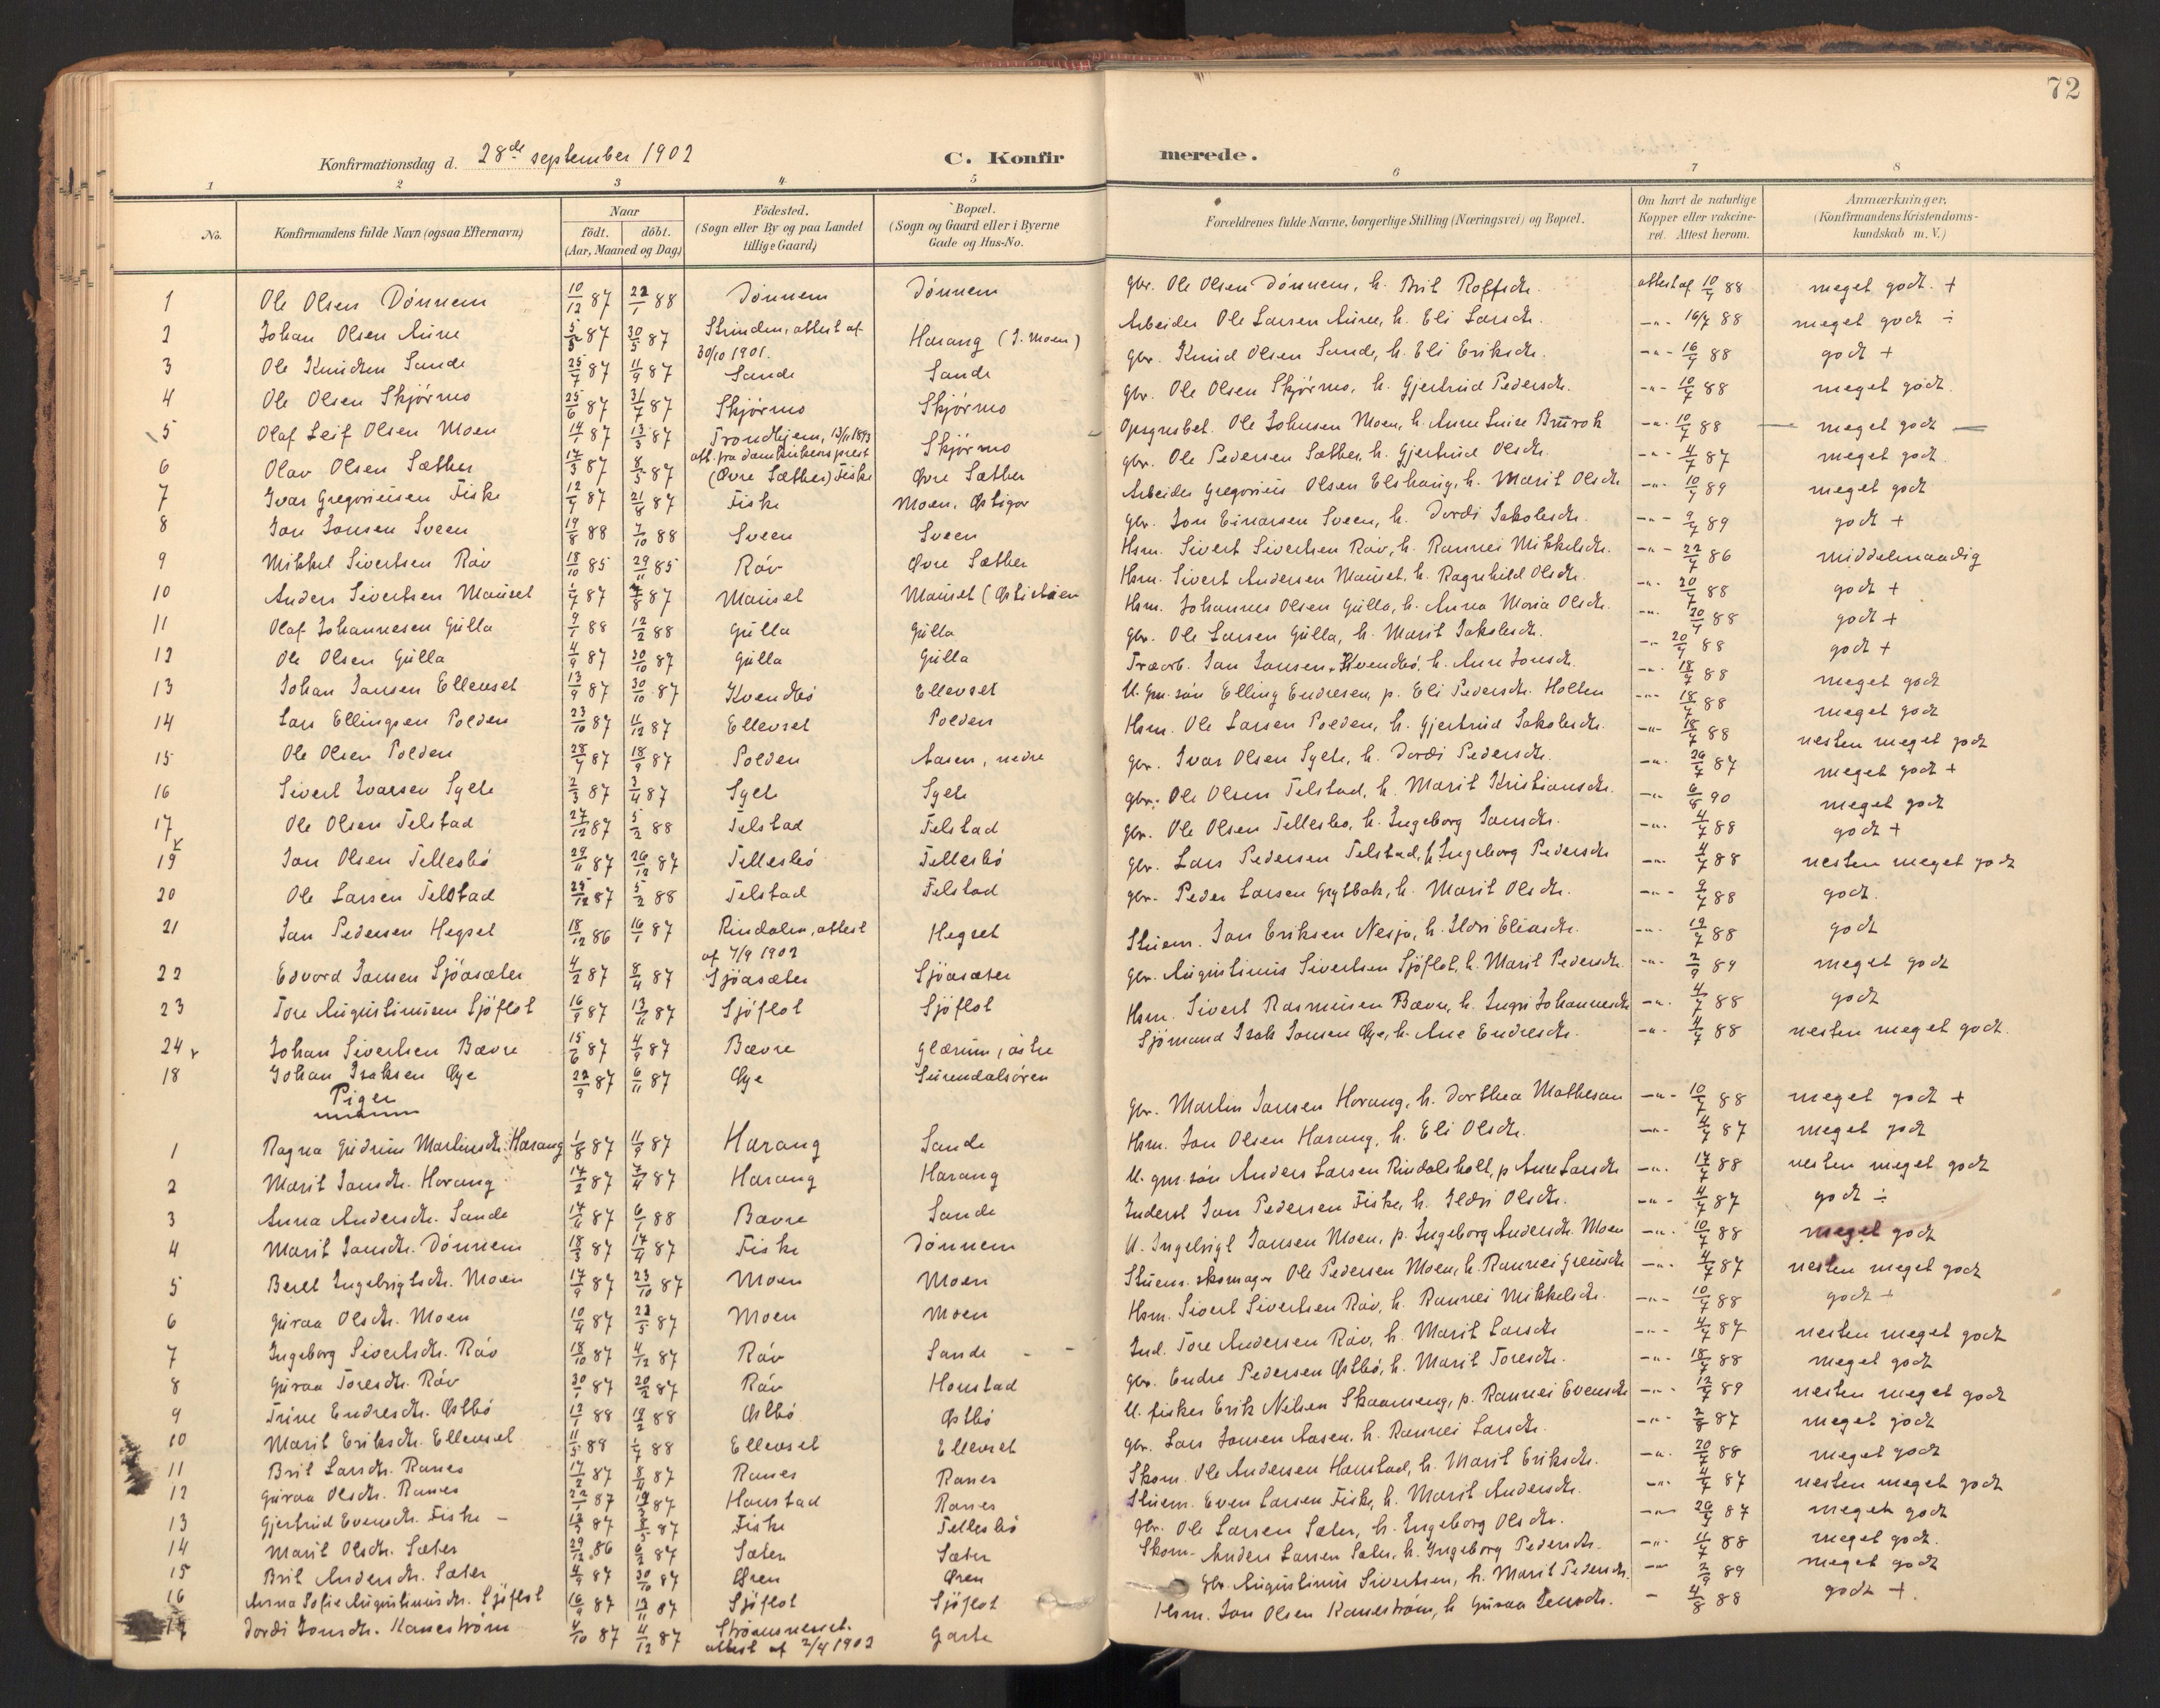 72
Konfirmationsdag d. 28de september 1902
C. Konfirmerede.
1 2 3 4 5 6 7 8
No.
Konfirmandens fulde Navn (ogsaa Efternavn)
Naar
født. døbt.
(Aar, Maaned og Dag)
Födested.
(Sogn eller By og paa Landet
tillige Gaard)
Bopæl.
(Sogn og Gaard eller i Byerne
Gade og Hus-No.
Forældrenes fulde Navne, borgerlige Stilling (Næringsvei) og Bopæl.
Om havt de naturlige
Kopper eller vakcine-
ret. Attest herom.
Anmærkninger.
(Konfirmandens Kristendoms-
kundskab m. V.)
1 Ole Olsen Dönnem 10/12 87 22/1 88 Dönnem Dönnem gbr. Ole Olsen Dönnem, h. Brit Rolfsdtr. attest af 10/7 88 meget godt. +
2 Johan Olsen Aune 87 30/5 87 Strinden, attest af 30/10 1901. Harang (J. Moen) Arbeider Ole Larsen Aune, h. Eli Larsdtr. -"- 16/7 88 meget godt ÷
3 Ole Knudsen Sande 25/7 87 11/9 87 Sande Sande gbr. Knud Olsen Sande, h. Eli Eriksdtr. -"- 16/7 88 godt +
4 Ole Olsen Skjörmo 25/6 87 31/7 87 Skjörmo Skjörmo gbr. Ole Olsen Skjörmo, h. Gjertrud Pedersdtr. -"- 10/7 88 meget godt.
5 Olaf Leif Olsen Moen 14/1 87 13/3 87 Trondhjem, att. fra domkirkens prest Skjörmo Ole Johnsen Moen, h. Anne Luise -"- 10/7 88 — meget godt —
6 Olav Olsen Sæther 14/3 87 8/5 87 (Övre Sæther) Fiske Övre Sæther gbr. Ole Pedersen Sæther, h. Gjertrud Olsdtr. -"- 4/7 87 meget godt
7 Ivar Gregoriusen Fiske 12/7 87 21/8 87 Fiske Moen, Östigar Arbeider Gregorius Olsen Elshaug, h. Marit Olsdtr -"- 10/7 89 meget godt
8 Jon Jonsen Sveen 19/8 88 7/10 88 Sveen Sveen gbr. Jon Einarsen Sveen, h. Dordi Jakobsdtr. -"- 9/7 89 godt +
9 Mikkel Sivertsen Räv 18/10 85 29/11 85 Röv Övre Sæther Hsm. Sivert Sivertsen Röv, h. Rannei Mikkelsdtr. -"- 22/7 86 middelmaadig
10 Anders Sivertsen Mauset 87 87 Mauset Mauset Hsm. Sivert Andersen Mauset, h. Ragnhild Olsdtr. -"- 20/7 88 godt +
11 Olaf Johannesen Gulla 9/1 88 12/2 88 Gulla Gulla Hsm. Johannes Olsen Gulla, h. Anna Maria Olsdtr. -"- 20/7 88 godt +
12 Ole Olsen Gulla 4/9 87 30/10 87 Gulla Gulla gbr. Ole Larsen Gulla, h. Marit Jakobsdtr. -"- 20/7 88 godt +
13 Johan Jonsen Ellevset 13/9 87 30/10 87 Kvendbö Ellevset Træarb. Jon Jonsen Kvendbö, h. Ane Jonsdtr. -"- 18/7 88 meget godt
14 Lars Ellingsen Polden 23/10 87 11/12 87 Ellevset Polden U. gm. sön Elling Endresen, p. Eli Pedersdtr. Holten -"- 18/7 88 meget godt
15 Ole Olsen Polden 28/7 87 18/9 87 Polden Aasen, nedre Hsm. Ole Larsen Polden, h. Gjertrud Jakobsdtr. -"- 18/7 88 nesten meget godt
16 Sivert Ivarsen Sylte 2/3 87 3/4 87 Sylte Sylte gbr. Ivar Olsen Sylte, h. Dordi Pedersdtr. -"- 26/7 87 meget godt +
17 Ole Olsen Telstad 27/12 87 5/2 88 Telstad Telstad gbr. Ole Olsen Telstad, h. Marit Kristiansdtr. -"- 6/8 90 meget godt
19 Jon Olsen Tellesbö 29/11 87 26/12 87 Tellesbö Tellesbö gbr. Ole Olsen Tellesbö, h. Ingeborg Jonsdtr. -"- 4/7 88 godt +
20 Ole Larsen Telstad 25/12 87 5/2 88 Telstad Telstad gbr. Lars Pedersen Telstad, h Ingeborg Pedersdtr -"- 4/7 88 nesten meget godt
21 Jon Pedersen Hegset 18/12 86 16/1 87 Rindalen, attest af 7/9 1902 Hegset gbr. Peder Larsen Grytbak, h. Marit Olsdtr. -"- 9/7 88 godt.
22 Edvard Jonsen Sjöasæter 4/2 87 8/4 87 Sjöasæter Sjöasæter Stuem. Jon Eriksen Nesja, h. Ildri Eliasdtr. -"- 12/7 88 godt
23 Tore Augustinusen Sjöflot 16/9 87 13/11 87 Sjöflot Sjöflot gbr. Augustinus Sivertsen Sjöflot, h. Marit Pedersdtr. -"- 2/9 89 meget godt
24 Johan Sivertsen Bævre 15/6 87 4/9 87 Bævre Glærum, östre Hsm. Sivert Rasmusen Bævre, h. Ingri Johannesdtr -"- 4/7 88 godt
18 Johan Isaksen Öye 22/9 87 6/11 87 Öye Surendalsören Sjömand Isak Jonsen Öye, h. Ane Endresdtr. -"- 4/7 88 nesten meget godt.
Piger
1 Ragna Gudrun Martinsdtr. Harang 1/8 87 11/9 87 Harang Sande gbr. Martin Jonsen Harang, h. Dorthea Mathesen -"- 10/7 88 meget godt +
2 Marit Jonsdtr. Harang 14/2 87 7/4 87 Harang Harang Hsm. Jon Olsen Harang, h. Eli Olsdtr. -"- 4/7 87 meget godt
3 Anna Andersdtr. Sande 14/11 87 6/1 88 Bævre Sande U. gm. sön Anders Larsen Rindalsholt, p Ane Larsdtr -"- 14/7 88 nesten meget godt
4 Marit Jonsdtr. Dönnem 18/3 87 17/4 87 Fiske Dönnem Inderst Jon Pedersen Fiske, h. Ildri Olsdtr. -"- 4/7 87 godt ÷
5 Beret Ingebrigtsdtr. Moen 17/9 87 23/10 87 Moen Moen U. Ingebrigt Jonsen Moen, p. Ingeborg Andersdtr. Moen -"- 10/7 88 meget godt
6 Guraa Olsdtr. Moen 10/4 87 22/5 87 Moen Moen Stuem. skomager Ole Pedersen Moen, h. Rannei -"- 4/7 87 nesten meget godt
7 Ingeborg Sivertsdtr. Röv 18/10 87 4/12 87 Röv Sande - - Hsm. Sivert Sivertsen Röv, h. Rannei Mikkelsdtr. -"- 10/7 88 godt +
8 Guraa Toresdtr. Röv 30/1 87 20/2 87 Röv Honstad Ind. Tore Andersen Röv, h. Marit Larsdtr -"- 4/7 87 nesten meget godt
9 Trine Endresdtr. Östbö 12/1 88 19/2 88 Östbö Östbö gbr. Endre Pedersen Östbö, h. Marit Toresdtr. -"- 18/7 88 meget godt
10 Marit Eriksdtr. Ellevset 11/5 88 1/7 88 Ellevset Ellevset U. fisker Erik Nelsen, p. Rannei Evensdtr -"- 12/7 89 nesten meget godt
11 Brit Larsdtr. Ranes 14/2 87 8/4 87 Ranes Ranes gbr. Lars Jonsen Aasen, h. Rannei Larsdtr. -"- 2/8 87 meget godt
12 Guraa Olsdtr. Ranes 22/1 87 87 Honstad Ranes Skom. Ole Andersen Honstad, h. Marit Eriksdtr. -"- 20/7 88 meget godt
13 Gjertrud Evensdtr. Fiske - 87 87 Fiske Tellesbö Stuem. Even Larsen Fiske, h. Marit Andersdtr. -"- 4/7 87 nesten meget godt
14 Marit Olsdtr. Sæter 29/12 86 6/2 87 Sæter Sæter gbr. Ole Larsen Sæter, h. Ingeborg Olsdtr. -"- 87 meget godt
15 Brit Andersdtr. Sæter 4/9 87 30/10 87 Ören Ören Skom. Anders Larsen Sæter, h. Ingeborg Pedersdtr. -"- 11/7 88 meget godt.
16 Anna Sofie Augustinusdtr. Sjöflot 16/9 87 13/11 87 Sjöflot Sjöflot gbr. Augustinus Sivertsen, h. Marit Pedersdtr. -"- 2/9 89 meget godt
17 Dordi Jonsdtr. Kaneström 4/10 87 4/12 87 Strömsneset. attest af 2/4 1902 Garte Hsm. Jon Olsen Kaneström, h Guraa Jensdtr. - 4/8 88 godt +.